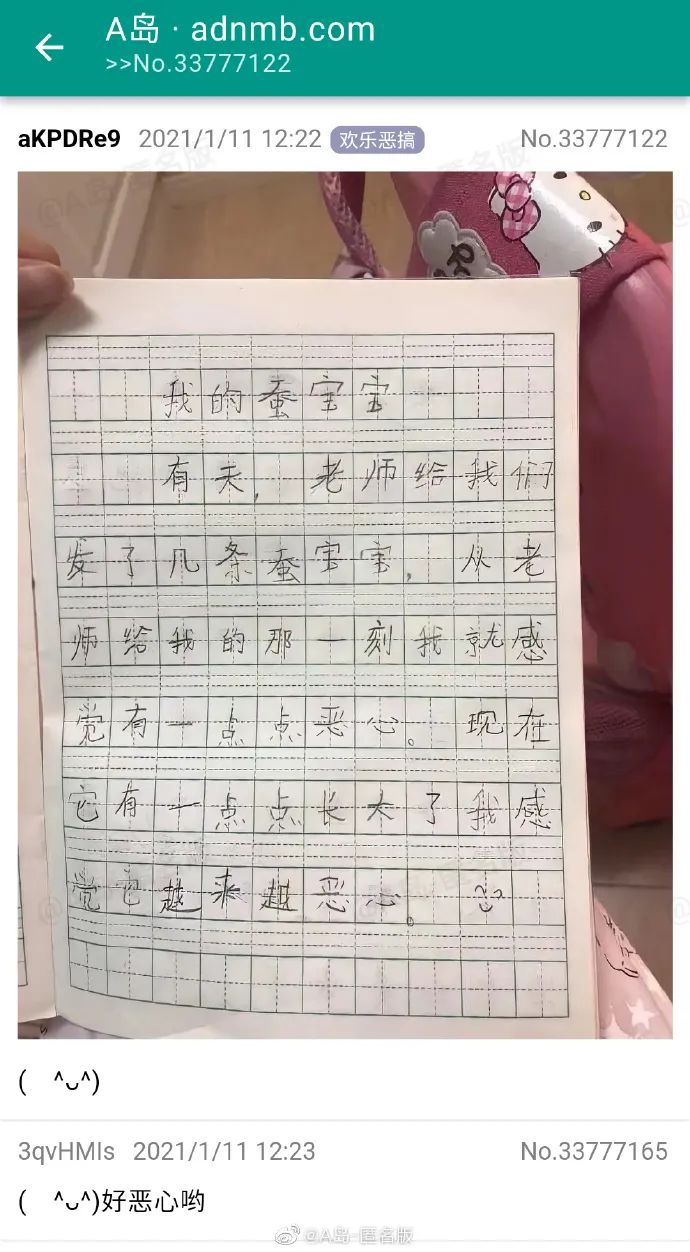 A岛 · adnmb.com
>>No.33777122
aKPDRe9 2021/1/11 12:22 欢乐恶搞 No.33777122
我的蚕宝宝
有天，老师给我们
发了几条蚕宝宝，从老
师给我的那一刻我就感
觉有一点点恶心。现在
它有一点点长大了我感
觉它越来越恶心。
( ^ᴗ^)
3qvHMls 2021/1/11 12:23 No.33777165
( ^ᴗ^)好恶心哟
@A岛-匿名版